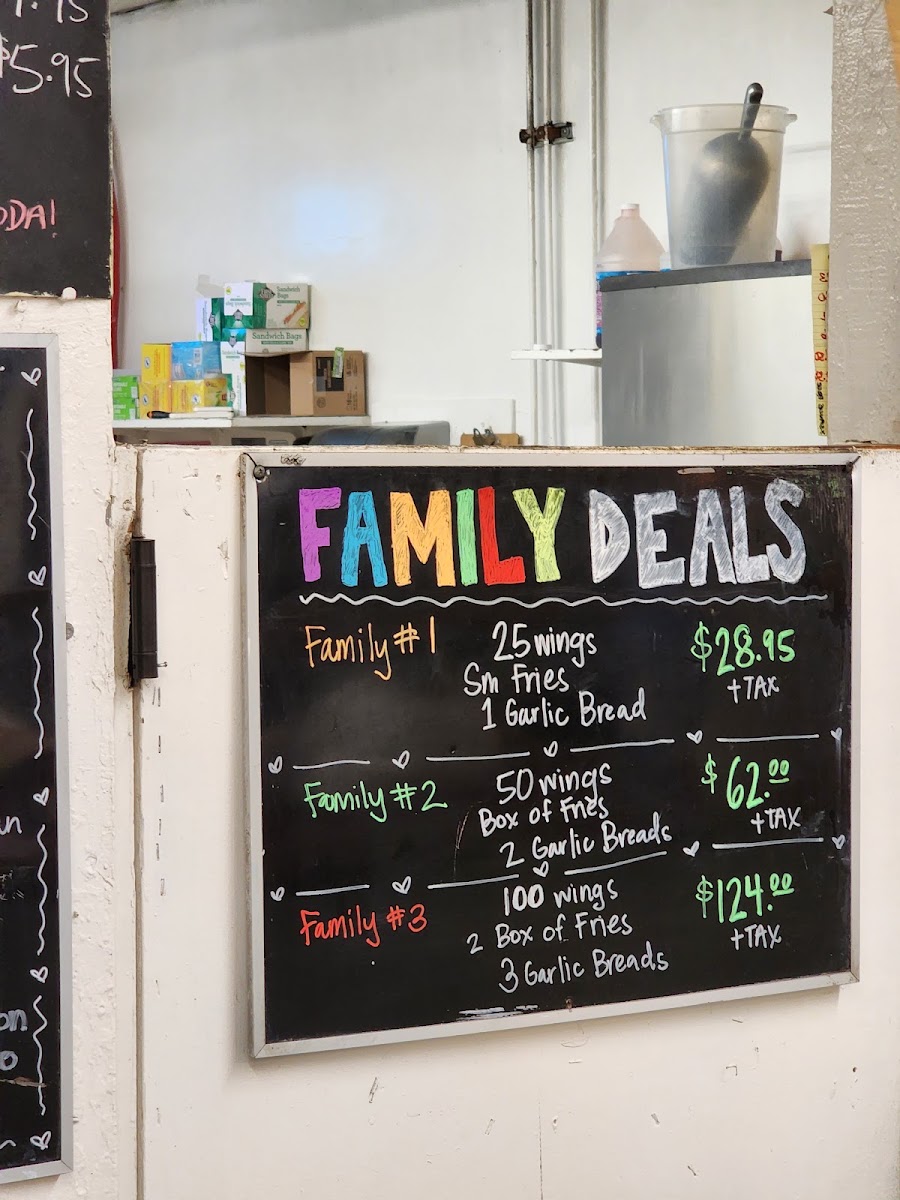 $5.95
ODA!
Sandwich Bags
Sandwich Bags
FAMILY DEALS
Family #1 25 wings $28.95
Sm Fries +TAX
1 Garlic Bread
Family #2 50 wings $62.00
Box of Fries +TAX
2 Garlic Breads
Family #3 100 wings $124.00
2 Box of Fries +TAX
3 Garlic Breads